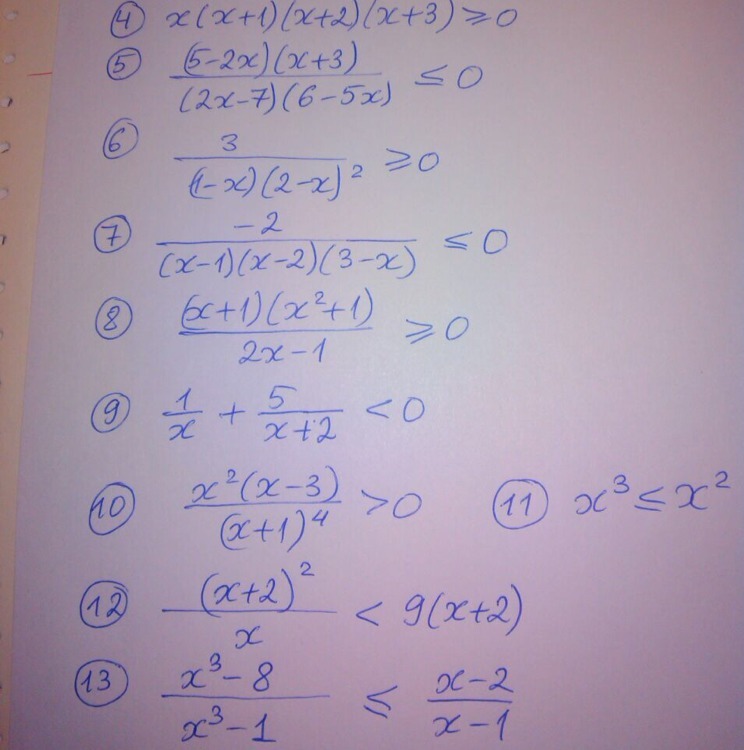 ④ x(x+1)(x+2)(x+3) ⩾ 0
⑤ (5-2x)(x+3) / (2x-7)(6-5x) ≤ 0
⑥ 3 / (1-x)(2-x)² ⩾ 0
⑦ -2 / (x-1)(x-2)(3-x) ≤ 0
⑧ (x+1)(x²+1) / 2x-1 ⩾ 0
⑨ 1/x + 5/x+2 < 0
⑩ x²(x-3) / (x+1)⁴ > 0 ⑪ x³ ≤ x²
⑫ (x+2)² / x < 9(x+2)
⑬ x³-8 / x³-1 ≤ x-2 / x-1